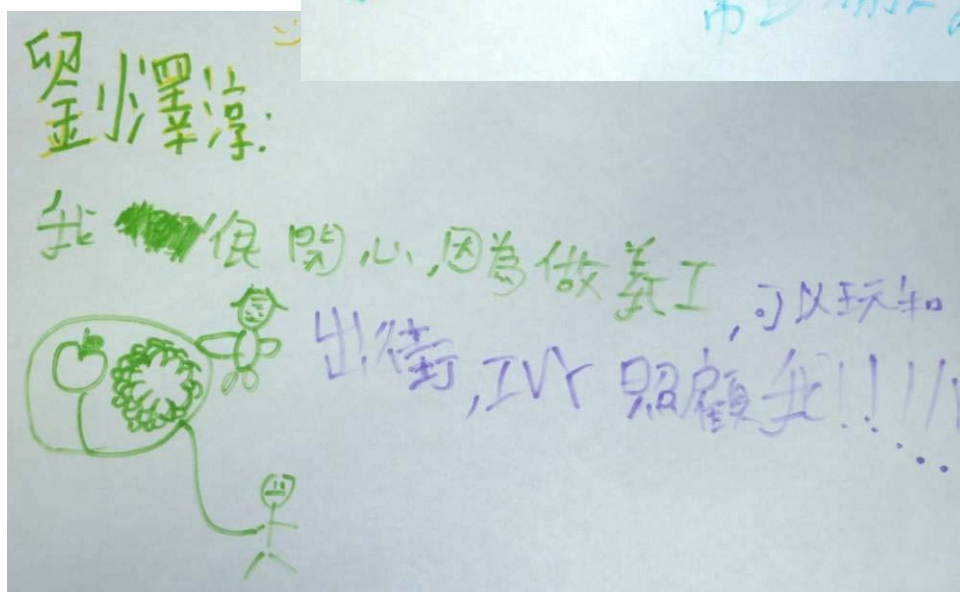 劉澤淳:
我很開心,因為做義工,可以玩和
出街,IVY 照顧我!!!!!